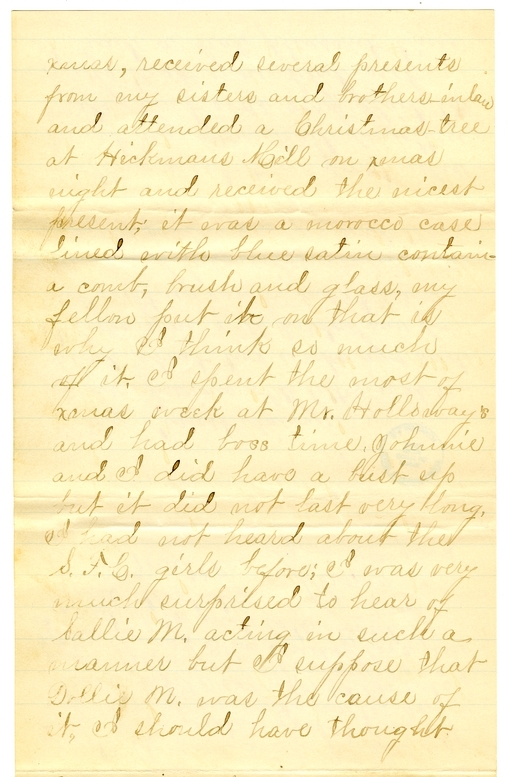 xmas, received several presents
from my sisters and brothers-inlaw
and attended a Christmas-tree
at Hickmans Mill on xmas
night and received the nicest
present; it was a morocco case
lined with blue satin contain-
a comb, brush and glass, my
fellow put it on that is
why I think so much
of it. I spent the most of
xmas week at Mr. Holloway's
and had boss time. Johnnie
and I did have a bust up
but it did not last very long.
I had not heard about the
S. F. C. girls before; I was very
much surprised to hear of
Sallie M. acting in such a
manner but I suppose that
Dollie M. was the cause of
it, I should have thought